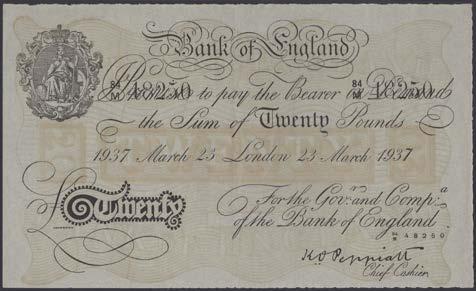 Bank of England
84/M 48250 84/M 48250
I Promise to pay the Bearer on Demand
the Sum of Twenty Pounds
1937 March 23 London 23 March 1937
Twenty
For the Gov.r and Comp.a
of the Bank of England.
84/M 48250
K.O. Peppiatt
Chief Cashier.